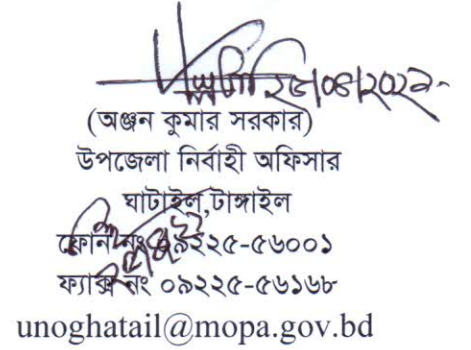 ২৫/০৪/২০২১
(অঞ্জন কুমার সরকার)
উপজেলা নির্বাহী অফিসার
ঘাটাইল,টাঙ্গাইল
ফোন নং ০৯২২৫-৫৬০০১
ফ্যাক্স নং ০৯২২৫-৫৬১৬৮
unoghatail@mopa.gov.bd